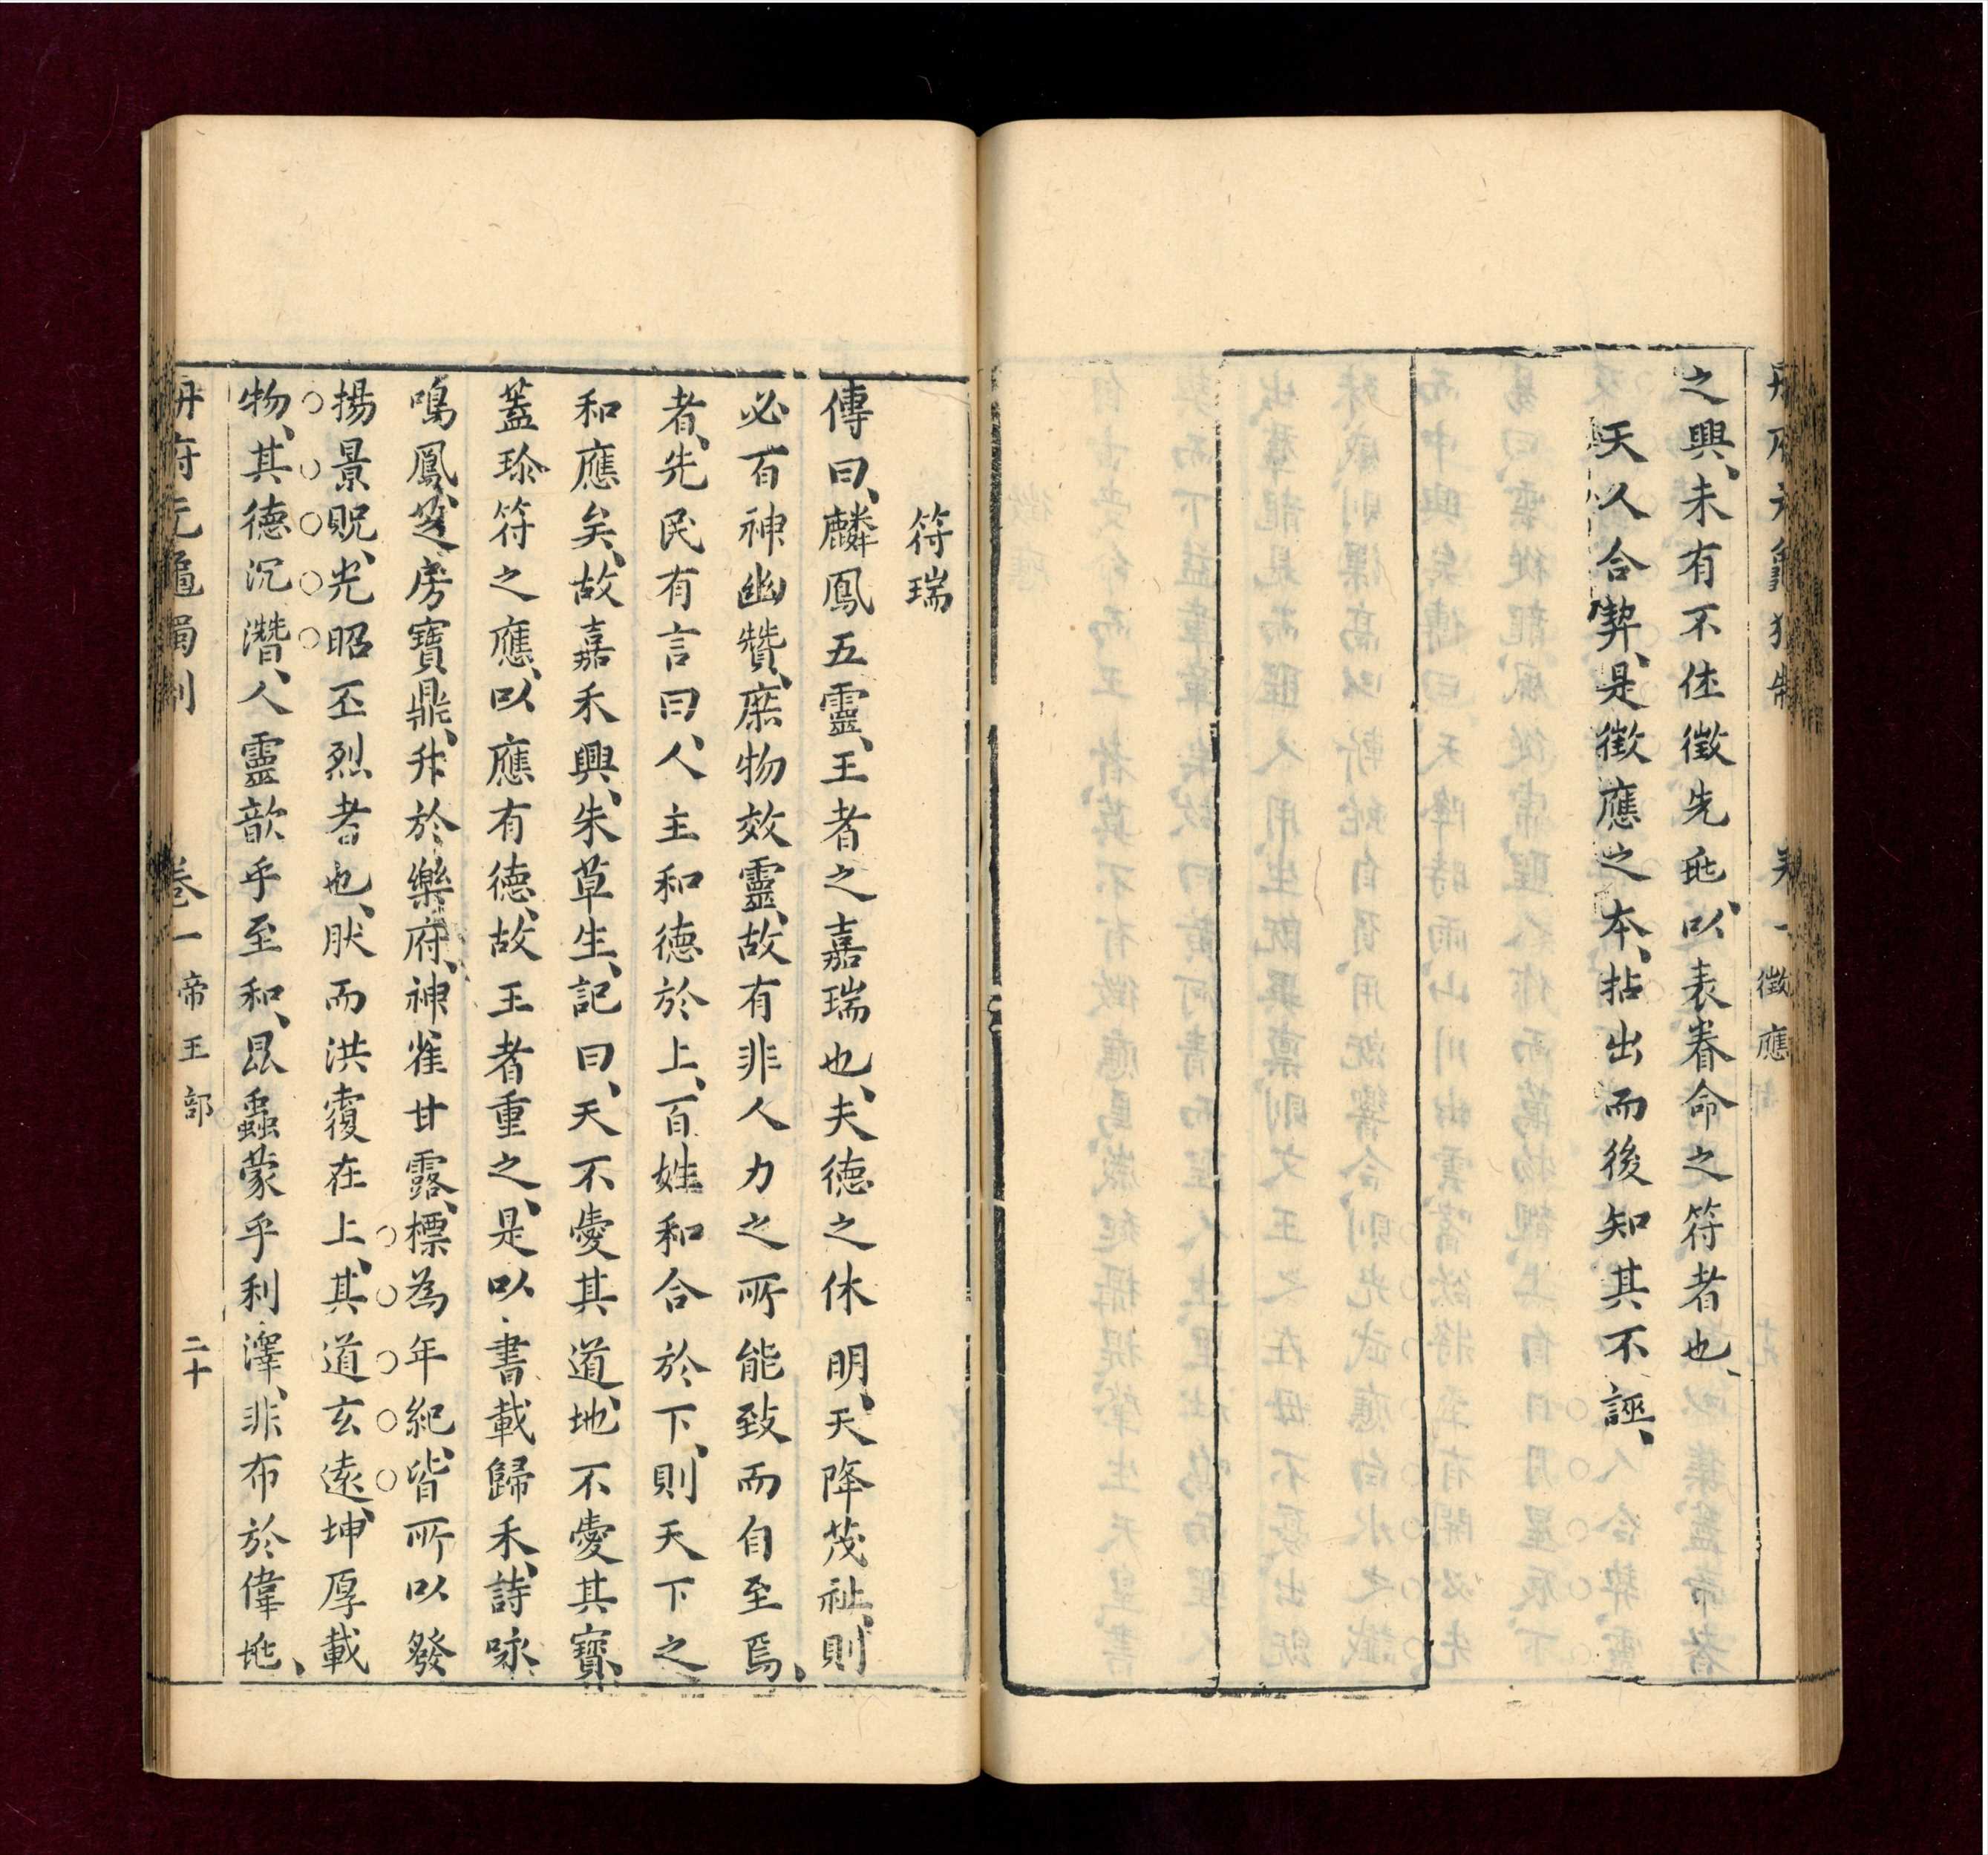 冊府元龜獨制 卷一 徵應
之興、未有不徃徵先兆、以表眷命之符者也、
天人合契、是徵應之本、拈出而後知其不誣、
符瑞
傳曰、麟鳳五靈、王者之嘉瑞也、夫德之休明、天降茂祉、則
必百神幽贊、庶物效靈、故有非人力之所能致而自至焉、
者、先民有言曰、人主和德於上、百姓和合於下、則天下之
和應矣、故嘉禾興、朱草生、記曰、天不愛其道、地不愛其寶、
蓋珍符之應、以應有德、故王者重之、是以書載歸禾、詩咏
鳴鳳、芝房寶鼎、升於樂府、神雀甘露、標為年紀、皆所以發
揚景貺、光昭丕烈者也、肰而洪覆在上、其道玄遠、坤厚載
物、其德沉潛、人靈歆乎至和、昆蟲蒙乎利澤、非布於偉兆、
冊府元龜獨制 卷一 帝王部 二十